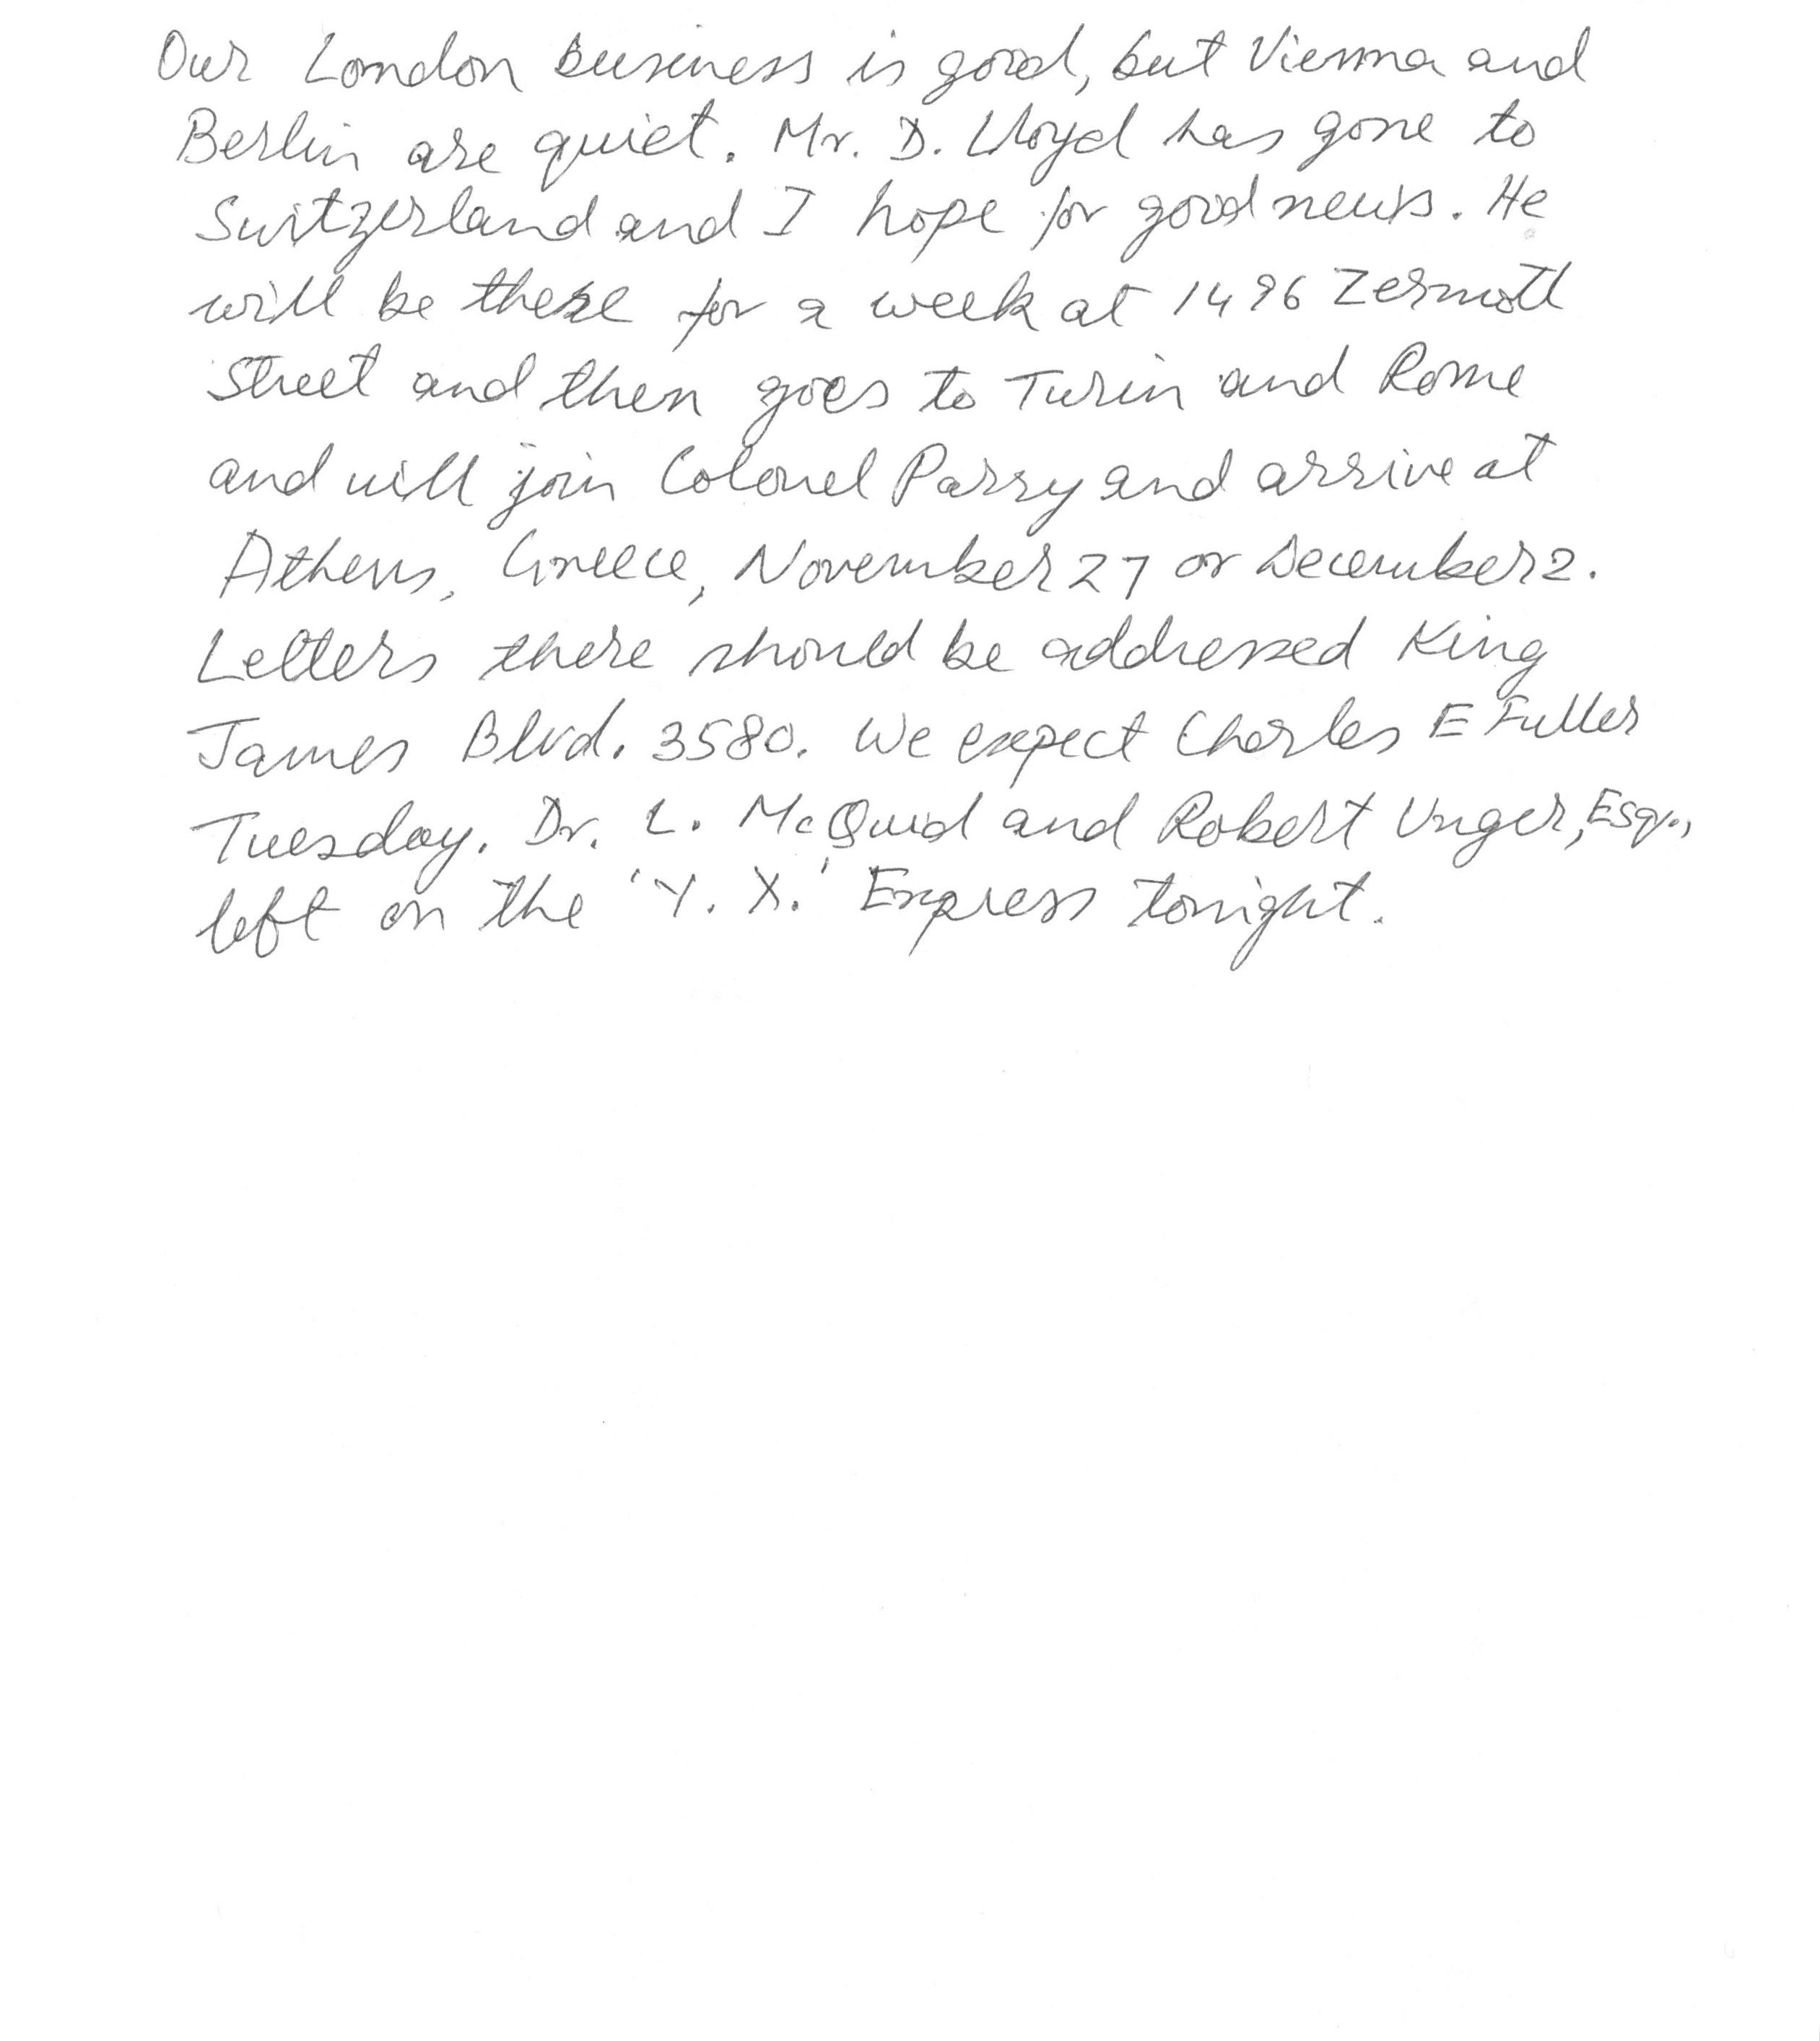 Our London business is good, but Vienna and
Berlin are quiet. Mr. D. Lloyd has gone to
Switzerland and I hope for good news. He
will be there for a week at 1496 Zermott
Street and then goes to Turin and Rome
and will join Colonel Parry and arrive at
Athens, Greece, November 27 or December 2.
Letters there should be addressed King
James Blvd. 3580. We expect Charles E Fuller
Tuesday. Dr. L. McQuid and Robert Unger, Esq.,
left on the 'Y. X.' Express tonight.